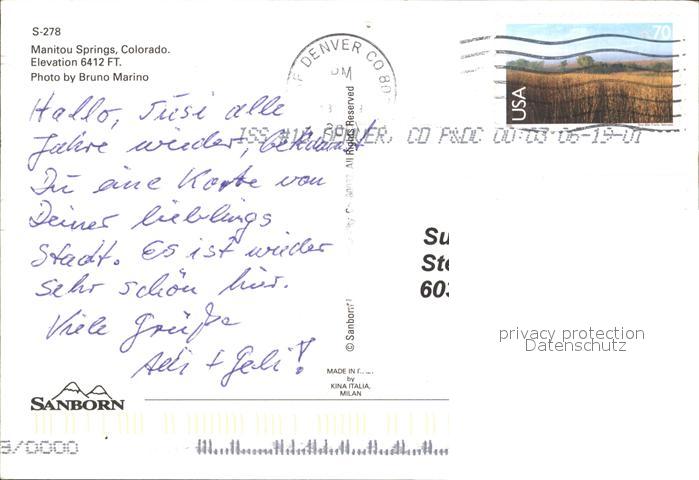 S-278
Manitou Springs, Colorado.
Elevation 6412 FT.
Photo by Bruno Marino
Hallo, Susi alle
Jahre wieder, bekommst
Du eine Karte von
Deiner lieblings
Stadt. Es ist wieder
sehr schön hier.
Viele Grüße
Adi + Geli!
SANBORN
9/0000
DENVER CO 80
PM
DENVER, CO P&DC 00:03 06-19-01
70
USA
All Rights Reserved
© Sanborn
MADE IN
by
KINA ITALIA,
MILAN
Su
Ste
603
privacy protection
Datenschutz